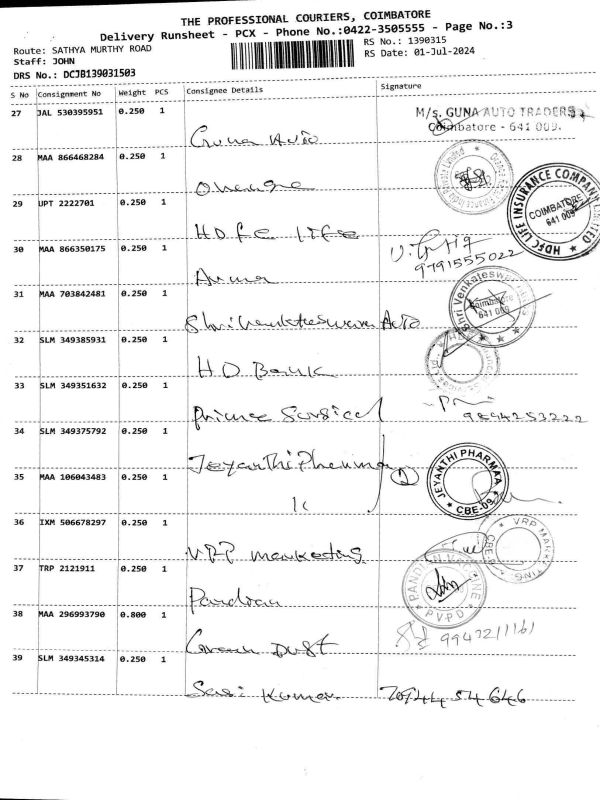 THE PROFESSIONAL COURIERS, COIMBATORE
Delivery Runsheet - PCX - Phone No.:0422-3505555 - Page No.:3
Route: SATHYA MURTHY ROAD
RS No.: 1390315
Staff: JOHN
RS Date: 01-Jul-2024
DRS No.: DCJB139031503
S No Consignment No Weight PCS Consignee Details Signature
27 JAL 530395951 0.250 1
M/s. GUNA AUTO TRADERS
Coimbatore - 641 009.
Guna Auto
28 MAA 866468284 0.250 1
29 UPT 2222701 0.250 1
HDFC LIFE INSURANCE COMPANY LIMITED
COIMBATORE
641 009
HDFC life
30 MAA 866350175 0.250 1
9791555022
31 MAA 703842481 0.250 1
Shri Venkateswara
Coimbatore
641 009
Shri Venkateswara Auto
32 SLM 349385931 0.250 1
HD Bank
33 SLM 349351632 0.250 1
Prince Surgical
9894253222
34 SLM 349375792 0.250 1
Jeyanthi Pharma
35 MAA 106043483 0.250 1
2
JEYANTHI PHARMAA
CBE-09
36 IXM 506678297 0.250 1
VRP MARKETING
CBE
VRP marketing
37 TRP 2121911 0.250 1
PVPD
Pandian
38 MAA 296993790 0.800 1
9943211161
Dust
39 SLM 349345314 0.250 1
Sasi Kumar 70944 54646